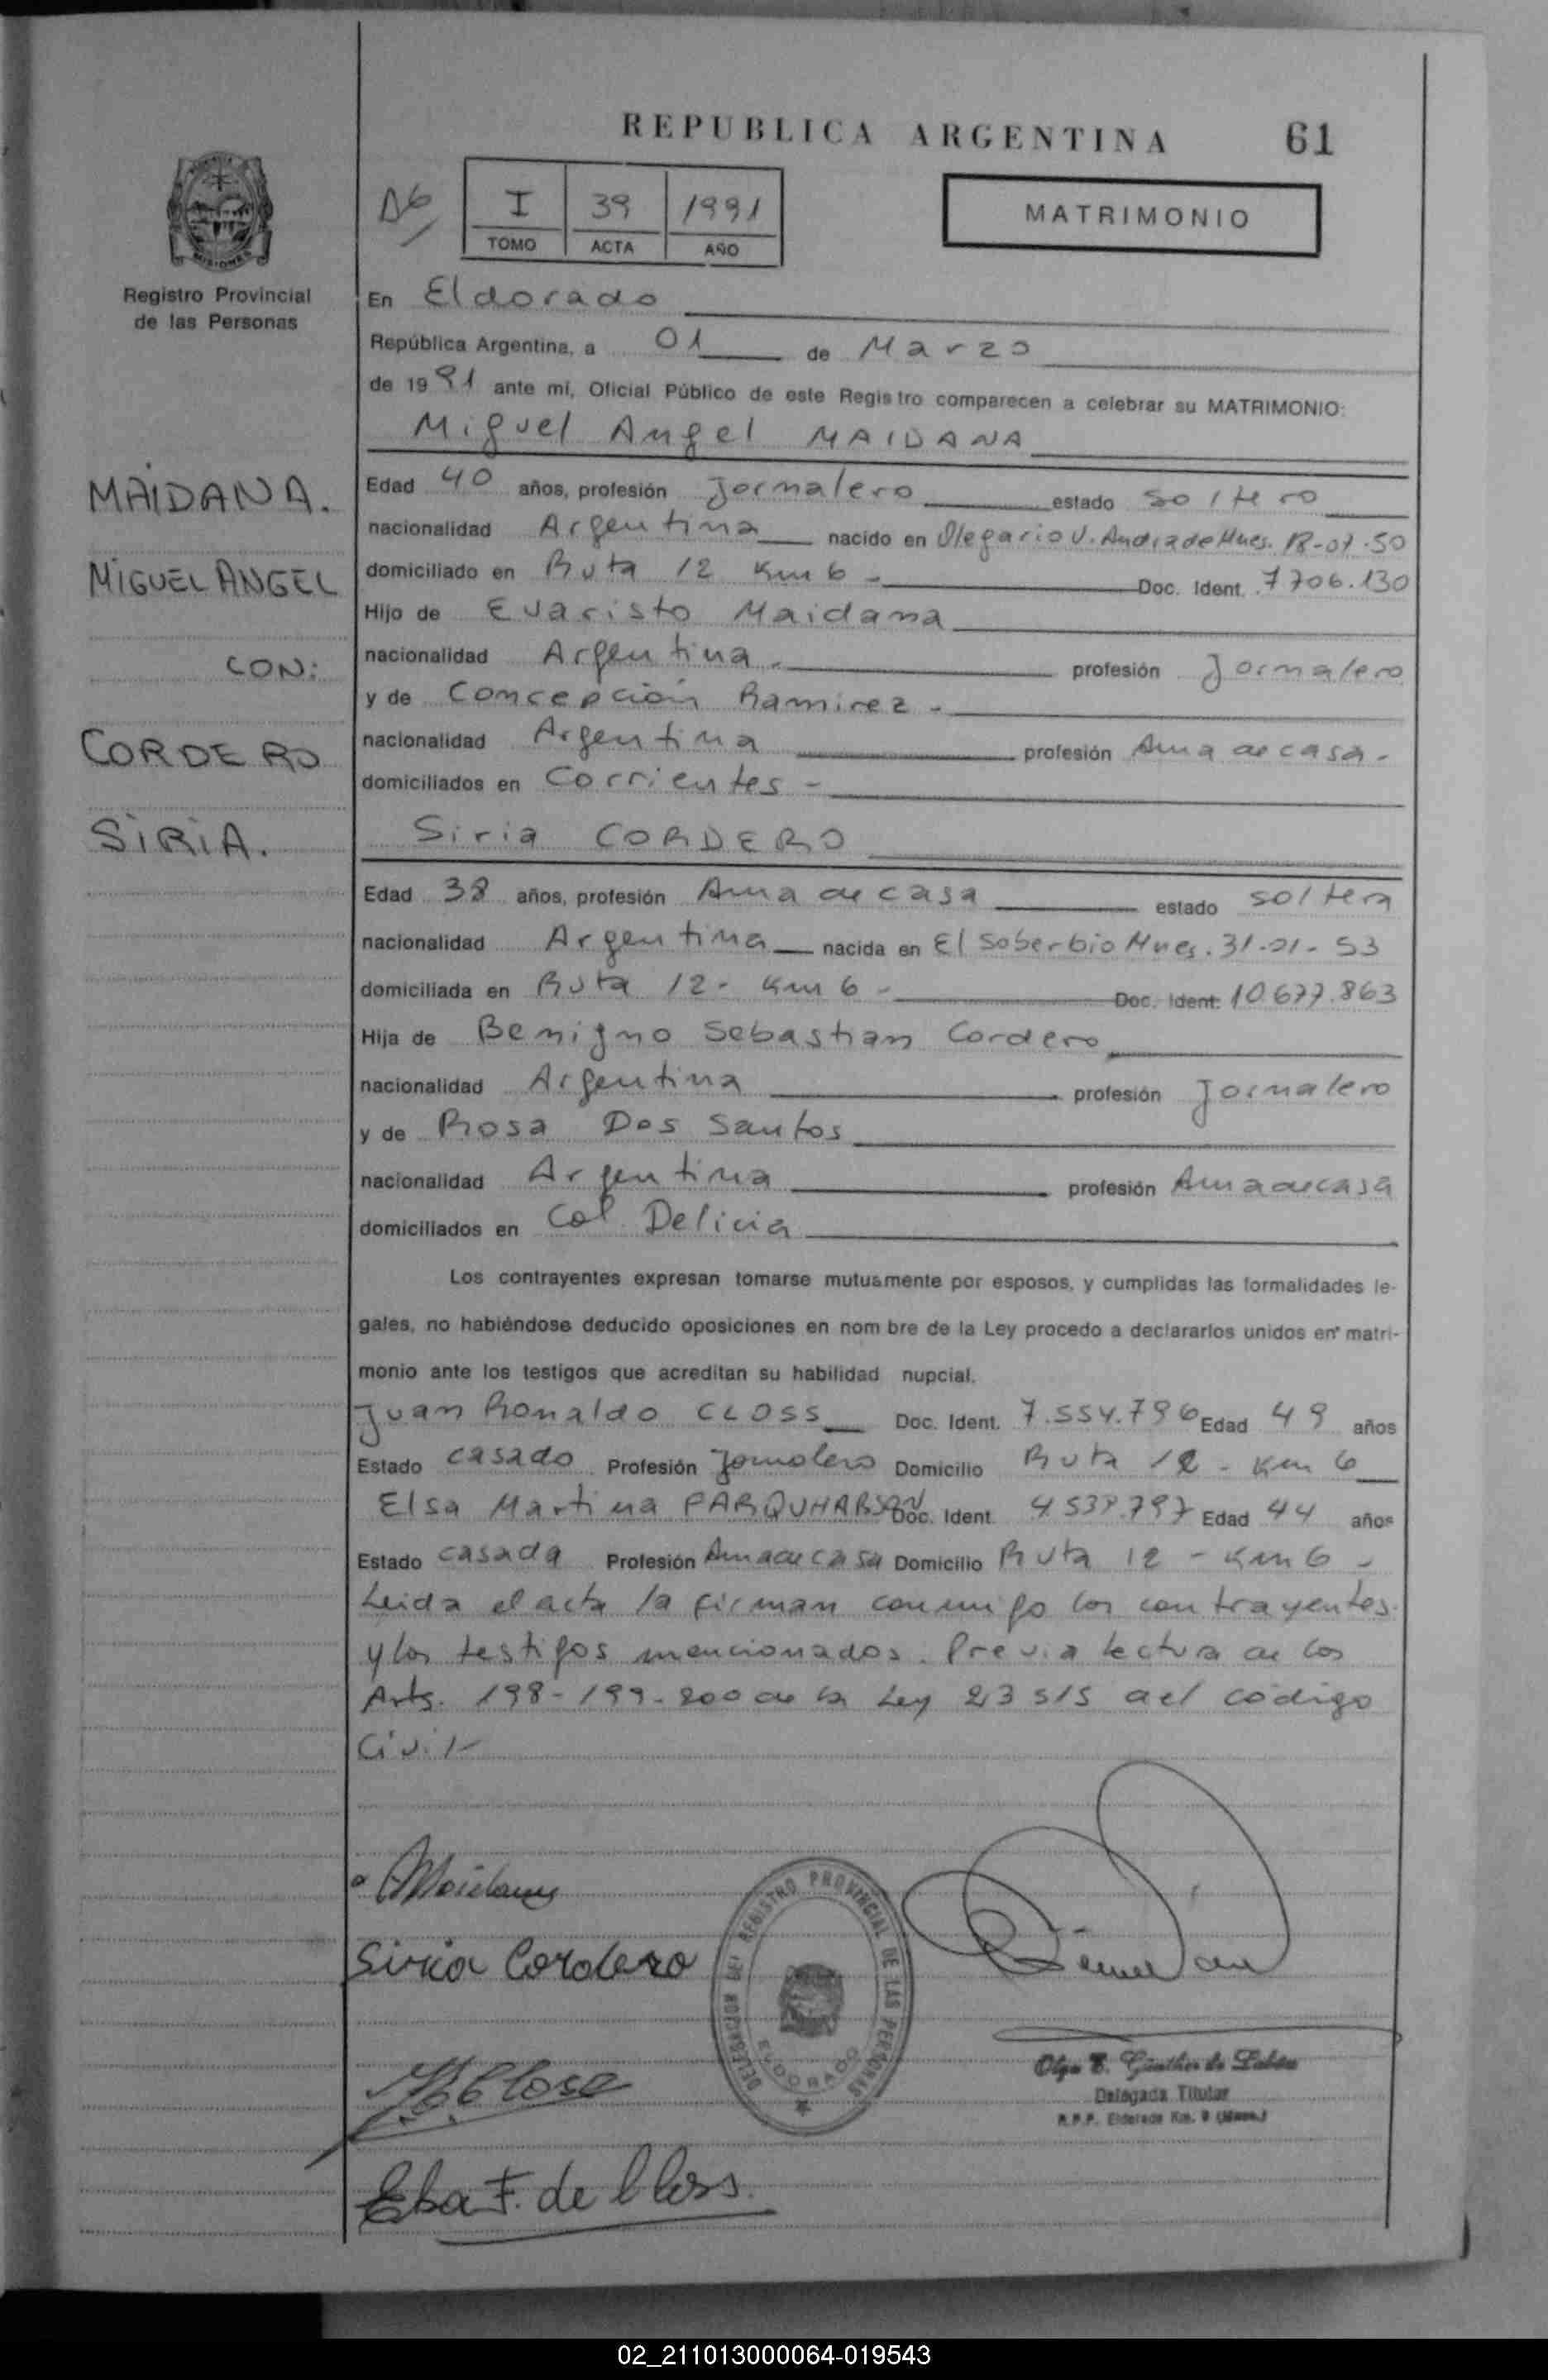 REPUBLICA ARGENTINA 61
D6
I 39 1991
TOMO ACTA AÑO
MATRIMONIO
MISIONES
Registro Provincial
de las Personas
En Eldorado
República Argentina, a 01 de Marzo
de 1991 ante mí, Oficial Público de este Registro comparecen a celebrar su MATRIMONIO:
Miguel Angel MAIDANA
MAIDANA.
MIGUEL ANGEL
CON:
CORDERO
SIRIA.
Edad 40 años, profesión Jornalero estado soltero
nacionalidad Argentina nacido en Olegario V. Andrade Mnes. 18-07-50
domiciliado en Ruta 12 Km 6 - Doc. Ident. 7706.130
Hijo de Evaristo Maidana
nacionalidad Argentina - profesión Jornalero
y de Concepción Ramirez -
nacionalidad Argentina profesión Ama de casa -
domiciliados en Corrientes -
Siria CORDERO
Edad 38 años, profesión Ama de casa estado soltera
nacionalidad Argentina nacida en El Soberbio Mnes. 31-01-53
domiciliada en Ruta 12 - Km 6 - Doc. Ident. 10.677.863
Hija de Benigno Sebastian Cordero
nacionalidad Argentina profesión Jornalero
y de Rosa Dos Santos
nacionalidad Argentina profesión Ama de casa
domiciliados en Col. Delicia
Los contrayentes expresan tomarse mutuamente por esposos, y cumplidas las formalidades le-
gales, no habiéndose deducido oposiciones en nom bre de la Ley procedo a declararlos unidos en matri-
monio ante los testigos que acreditan su habilidad nupcial.
Juan Ronaldo CLOSS Doc. Ident. 7.554.796 Edad 49 años
Estado casado Profesión Jornalero Domicilio Ruta 12 - Km 6
Elsa Martina FARQUHARSON Doc. Ident. 4.539.797 Edad 44 años
Estado casada Profesión Ama de casa Domicilio Ruta 12 - Km 6 -
Leida el acta la firman conmigo los contrayentes
y los testigos mencionados. Previa lectura de los
Arts. 198-199-200 de la Ley 23515 del código
Civil-
Maidana
Siria Cordero
Closs
Elsa F. de Closs.
DELEGACION DEL REGISTRO PROVINCIAL DE LAS PERSONAS
ELDORADO
Olga E. Günther de
Delegada Titular
R.P.P. Eldorado Km. 9 (Mnes.)
02_211013000064-019543